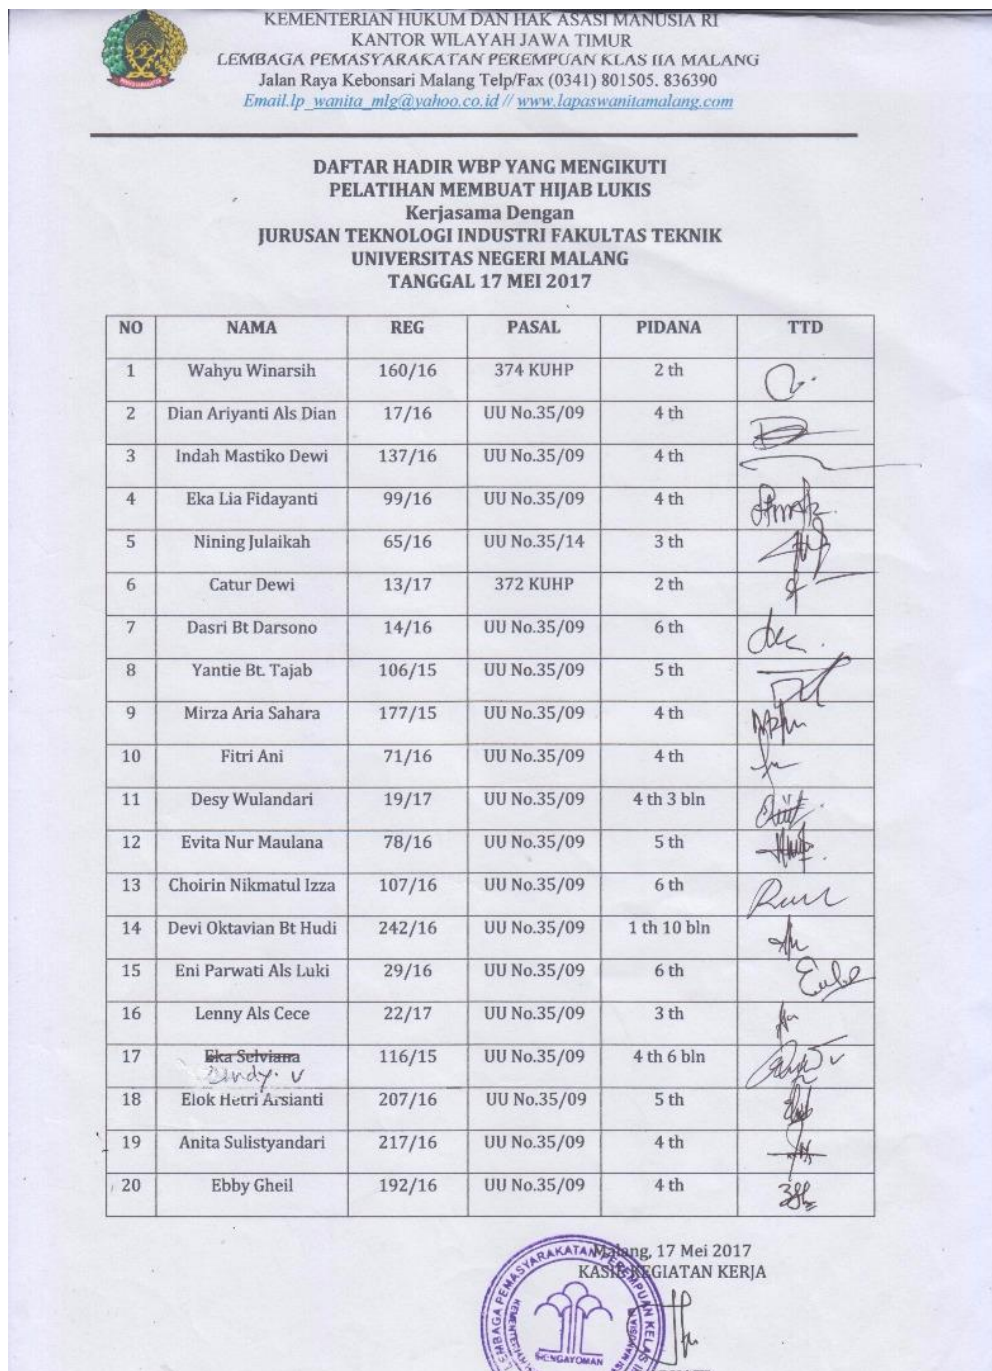 KEMENTERIAN HUKUM DAN HAK ASASI MANUSIA RI
KANTOR WILAYAH JAWA TIMUR
LEMBAGA PEMASYARAKATAN PEREMPUAN KLAS IIA MALANG
Jalan Raya Kebonsari Malang Telp/Fax (0341) 801505. 836390
Email.lp_wanita_mlg@yahoo.co.id // www.lapaswanitamalang.com
DAFTAR HADIR WBP YANG MENGIKUTI
PELATIHAN MEMBUAT HIJAB LUKIS
Kerjasama Dengan
JURUSAN TEKNOLOGI INDUSTRI FAKULTAS TEKNIK
UNIVERSITAS NEGERI MALANG
TANGGAL 17 MEI 2017
NO NAMA REG PASAL PIDANA TTD
1 Wahyu Winarsih 160/16 374 KUHP 2 th
2 Dian Ariyanti Als Dian 17/16 UU No.35/09 4 th
3 Indah Mastiko Dewi 137/16 UU No.35/09 4 th
4 Eka Lia Fidayanti 99/16 UU No.35/09 4 th
5 Nining Julaikah 65/16 UU No.35/14 3 th
6 Catur Dewi 13/17 372 KUHP 2 th
7 Dasri Bt Darsono 14/16 UU No.35/09 6 th
8 Yantie Bt. Tajab 106/15 UU No.35/09 5 th
9 Mirza Aria Sahara 177/15 UU No.35/09 4 th
10 Fitri Ani 71/16 UU No.35/09 4 th
11 Desy Wulandari 19/17 UU No.35/09 4 th 3 bln
12 Evita Nur Maulana 78/16 UU No.35/09 5 th
13 Choirin Nikmatul Izza 107/16 UU No.35/09 6 th
14 Devi Oktavian Bt Hudi 242/16 UU No.35/09 1 th 10 bln
15 Eni Parwati Als Luki 29/16 UU No.35/09 6 th
16 Lenny Als Cece 22/17 UU No.35/09 3 th
17 Eka Selviana 116/15 UU No.35/09 4 th 6 bln
18 Elok Hetri Arsianti 207/16 UU No.35/09 5 th
19 Anita Sulistyandari 217/16 UU No.35/09 4 th
20 Ebby Gheil 192/16 UU No.35/09 4 th
Malang, 17 Mei 2017
KASIE KEGIATAN KERJA
PENGAYOMAN